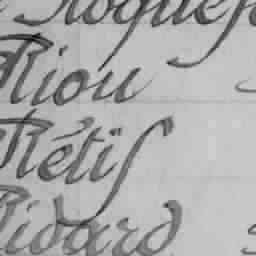 Riou
Rétif
Ridard